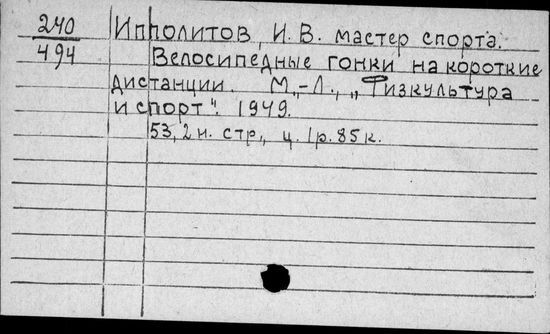 240 Ипполитов, И. В. мастер спорта.
494 Велосипедные гонки на короткие
дистанции. М.,-Л., „Физкультура
и спорт". 1949.
53, 2 н. стр., ц. 1р. 85 к.